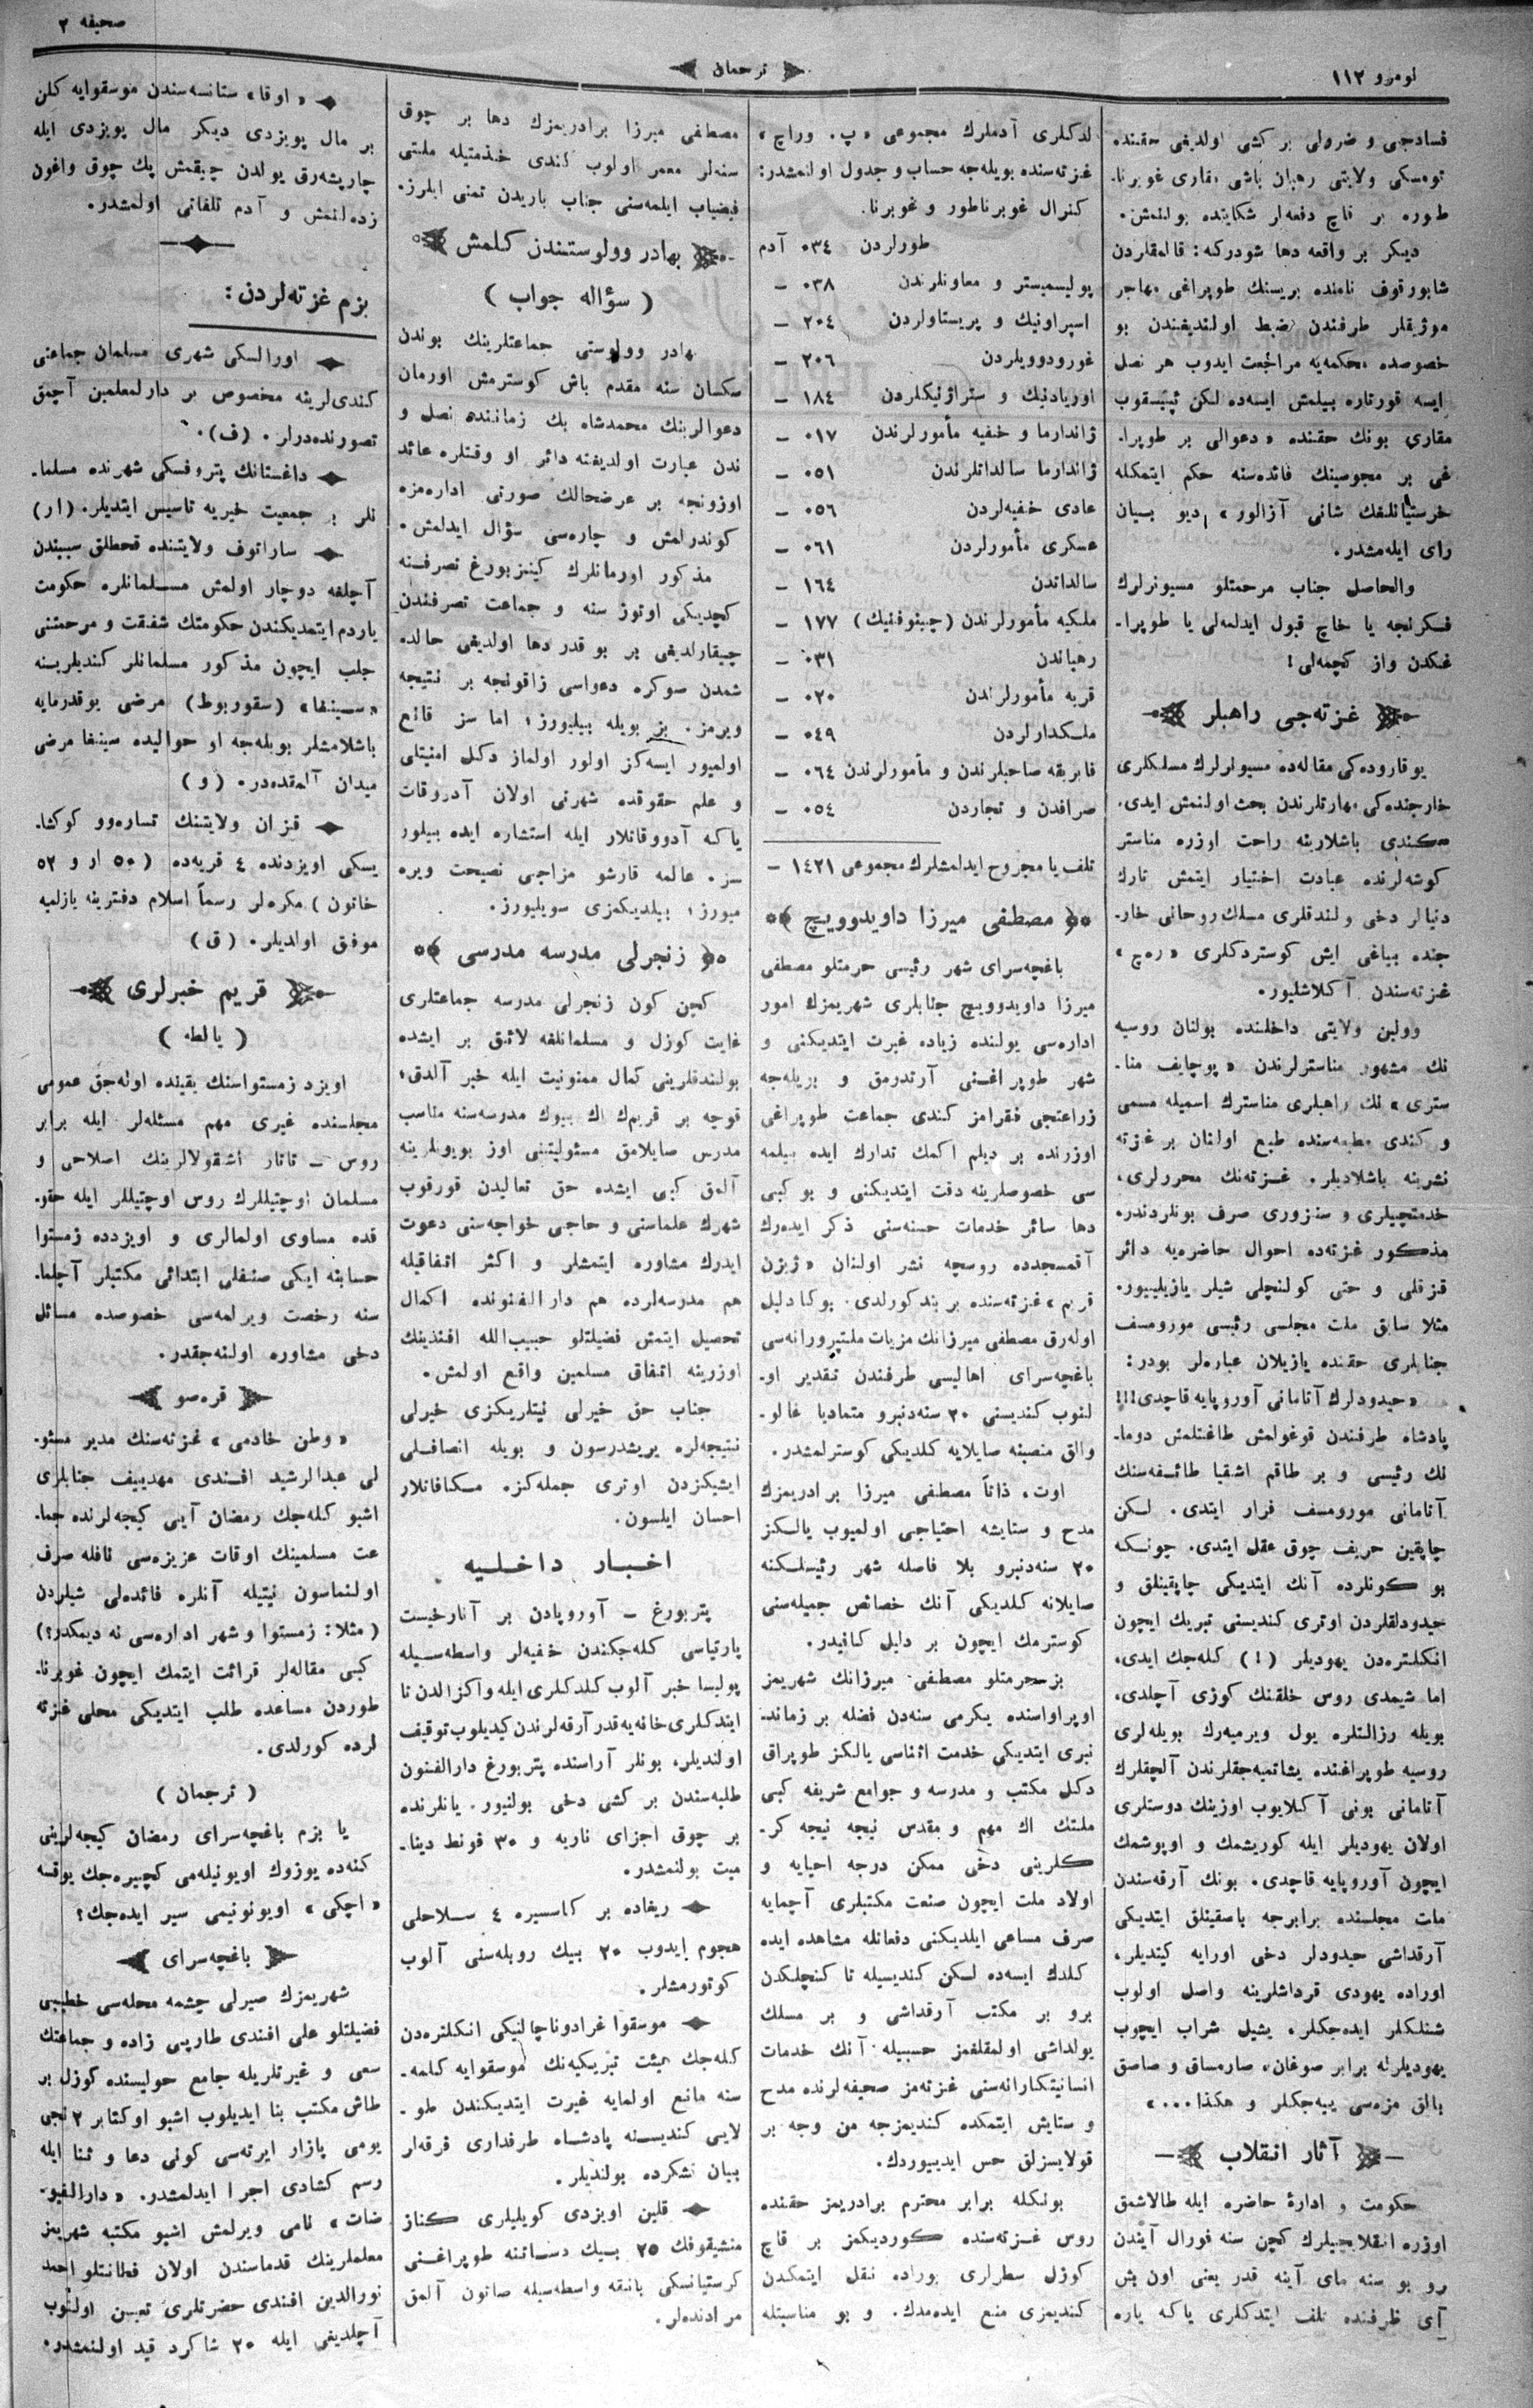 صحیفه ٢
ترجمان
نومرو ١١٢
فسادجی و ضرولی بر کشی اولدیغی حقنده
تومسکی ولایتی رهبان باشی مقاری غوبرنا۔
طوره بر قاچ دفعه‌لر شکایتده بولنمش.
دیکر بر واقعه دها شودرکه: قالمقلردن
شابورقوف نامنده بریسنك طوپراغی مهاجر
موژیقلر طرفندن ضبط اولندیغندن بو
خصوصده محکمه‌یه مراجعت ایدوب هر نصل
ایسه قورتاره بیلمش ایسه‌ده لکن ئپیسقوب
مقاری بونك حقنده «دعوالی بر طوپرا۔
غی بر مجوسینك فائده‌سنه حکم ایتمکله
خرستیانلغك شانی آزالور» دیو بیان
رای ایله‌مشدر.
والحاصل جناب مرحمتلو مسیونرلرك
فکرنجه یا خاچ قبول ایدلمه‌لی یا طوپرا۔
غکدن واز کچمه‌لی!
غزته‌جی راهبلر
یوقاروده‌کی مقاله‌ده مسیونرلرك مسلکلری
خارجنده‌کی مهارتلرندن بحث اولنمش ایدی.
کندی باشلارینه راحت اوزره مناستر
کوشه‌لرنده عبادت اختیار ایتمش تارك
دنیالر دخی ولندقلری مسلك روحانی خار۔
جنده بیاغی ایش کوستردکلری «ره‌چ»
غزته‌سندن آکلاشلیور.
وولین ولایتی داخلنده بولنان روسیه
نك مشهور مناسترلرندن «پوچایف منا۔
ستری» نك راهبلری مناسترك اسمیله مسمی
و کندی مطبعه‌سنده طبع اولنان بر غزته
نشرینه باشلادیلر. غزته‌نك محررلری،
خدمتچیلری و سنزوری صرف بونلردندر.
مذکور غزته‌ده احوال حاضره‌یه دائر
قزقلی و حتی کولنچلی شیلر یازیلییور.
مثلا سابق ملت مجلسی رئیسی مورومسف
جنابلری حقنده یازیلان عباره‌لر بودر:
«حیدودلرك آتامانی آوروپایه قاچدی!!!
پادشاه طرفندن قوغولمش طاغتلمش دوما۔
نك رئیسی و بر طاقم اشقیا طائفه‌سنك
آتامانی مورومسف فرار ایتدی. لکن
چاپقین حریف چوق عقل ایتدی. چونکه
بو کونلرده آنك ایتدیکی چاپقینلق و
حیدودلقلردن اوتری کندیسنی تبریك ایچون
انکلتره‌دن یهودیلر (!) کله‌جك ایدی،
اما شیمدی روس خلقنك کوزی آچلدی،
بویله رزالتلره یول ویرمیه‌رك بویله‌لری
روسیه طوپراغنده یشاتمیه‌جقلرندن آلچقلرك
آتامانی بونی آکلایوب اوزینك دوستلری
اولان یهودیلر ایله کوریشمك و اوپوشمك
ایچون آوروپایه قاچدی. بونك آرقه‌سندن
ملت مجلسنده برابرجه باسقینلق ایتدیکی
آرقداشی حیدودلر دخی اورایه کیتدیلر،
اوراده یهودی قرداشلرینه واصل اولوب
شنلکلر ایده‌جکلر. یشیل شراب ایچوب
یهودیلرله برابر صوغان، صارمساق و صاصق
بالق مزه‌سی ییه‌جکلر و هکذا...»
آثار انقلاب
حکومت و ادارۀ حاضره ایله طالاشمق
اوزره انقلابجیلرك کچن سنه فورال آیندن
رو بو سنه مای آینه قدر یعنی اون بش
آی ظرفنده تلف ایتدکلری یاکه یاره
لدکلری آدملرك مجموعی «پ. وراچ»
غزته‌سنده بویله‌جه حساب و جدول اولنمشدر:
کنرال غوبرناطور و غوبرنا.
طورلردن ٠٣٤ آدم
پولیسمیستر و معاونلرندن ٠٣٨ –
اسپراونیك و پریستاولردن ٢٠٤ –
غورودوویلردن ٢٠٦ –
اوریادنیك و ستراژنیکلردن ١٨٤ –
ژاندارما و خفیه مأمورلرندن ٠١٧ –
ژاندارما سالداتلرندن ٠٥١ –
عادی خفیه‌لردن ٠٥٦ –
عسکری مأمورلردن ٠٦١ –
سالداتدن ١٦٤ –
ملکیه مأمورلرندن (چینوفنیك) ١٧٧ –
رهباندن ٠٣١ –
قریه مأمورلرندن ٠٢٠ –
ملکدارلردن ٠٤٩ –
فابریقه صاحبلرندن و مأمورلرندن ٠٦٤ –
صرافدن و تجاردن ٠٥٤ –
تلف یا مجروح ایدلمشلرك مجموعی ١٤٢١ –
مصطفی میرزا داویدوویچ
باغچه‌سرای شهر رئیسی حرمتلو مصطفی
میرزا داویدوویچ جنابلری شهریمزك امور
اداره‌سی یولنده زیاده غیرت ایتدیکنی و
شهر طوپراغنی آرتدرمق و بریله‌جه
زراعتجی فقرامز کندی جماعت طوپراغی
اوزرنده بر دیلم اکمك تدارك ایده بیلمه
سی خصوصلرینه دقت ایتدیکنی و بو کبی
دها سائر خدمات حسنه‌سنی ذکر ایده‌رك
آقمسجدده روسچه نشر اولنان «ژیزن
قریم» غزته‌سنده بر بند کورلدی. بوکا دلیل
اوله‌رق مصطفی میرزانك مزیات ملتپرورانه‌سی
باغچه‌سرای اهالیسی طرفندن تقدیر او۔
لنوب کندیسنی ٢٠ سنه‌دنبرو متمادیا غالو۔
والق منصبنه صایلایه کلدیکی کوسترلمشدر.
اوت، ذاتاً مصطفی میرزا برادریمزك
مدح و ستایشه احتیاجی اولمیوب یالکز
٢٠ سنه‌دنبرو بلا فاصله شهر رئیسلکنه
صایلانه کلدیکی آنك خصائص جمیله‌سنی
کوسترمك ایچون بر دلیل کافیدر.
بز حرمتلو مصطفی میرزانك شهریمز
اوپراواسنده یکرمی سنه‌دن فضله بر زماند۔
نبری ایتدیکی خدمت اثناسی یالکز طوپراق
دکل مکتب و مدرسه و جوامع شریفه کبی
ملتك اك مهم و مقدس نیجه نیجه کر۔
کلرینی دخی ممکن درجه احیایه و
اولاد ملت ایچون صنعت مکتبلری آچمایه
صرف مساعی ایلدیکنی دفعاتله مشاهده ایده
کلدك ایسه‌ده لکن کندیسیله تا کنچلکدن
برو بر مکتب آرقداشی و بر مسلك
یولداشی اولمقلغمز حسبیله آنك خدمات
انسانیتکارانه‌سنی غزته‌مز صحیفه‌لرنده مدح
و ستایش ایتمکده کندیمزجه من وجه بر
قولایسزلق حس ایدییوردك.
بونکله برابر محترم برادریمز حقنده
روس غزته‌سنده کوردیکمز بر قاچ
کوزل سطرلری بوراده نقل ایتمکدن
کندیمزی منع ایده‌مدك. و بو مناسبتله
مصطفی میرزا برادریمزك دها بر چوق
سنه‌لر معمر اولوب کندی خذمتیله ملتی
فیضیاب ایلمه‌سنی جناب باریدن تمنی ایلرز.
بهادر وولوستندن کلمش
( سؤاله جواب )
بهادر وولوستی جماعتلرینك بوندن
سکسان سنه مقدم باش کوسترمش اورمان
دعوالرینك محمدشاه بك زماننده نصل و
ندن عبارت اولدیغنه دائر او وقتلره عائد
اوزونجه بر عرضحالك صورتی اداره‌مزه
کوندرلمش و چاره‌سی سؤال ایدلمش.
مذکور اورمانلرك کینزبورغ تصرفنه
کچدیکی اوتوز سنه و جماعت تصرفندن
چیقارلدیغی بر بو قدر دها اولدیغی حالده
شمدن صوکره دعواسی زاقونجه بر نتیجه
ویرمز. بز بویله بیلیورز، اما سز قانع
اولمیور ایسه‌کز اولور اولماز دکل امنیتلی
و علم حقوقده شهرتی اولان آدووقات
یاکه آدووقاتلار ایله استشاره ایده بیلور
سز. عالمه قارشو مزاجی نصیحت ویره
میورز، بیلدیکمزی سویلیورز.
زنجرلی مدرسه مدرسی
کچن کون زنجرلی مدرسه جماعتلری
غایت کوزل و مسلمانلغه لائق بر ایشده
بولندقلرینی کمال ممنونیت ایله خبر آلدق،
قوجه بر قریمك اك بیوك مدرسه‌سنه مناسب
مدرس صایلامق مسئولیتنی اوز بویونلرینه
آلمق کبی ایشده حق تعالیدن قورقوب
شهرك علماسنی و حاجی خواجه‌سنی دعوت
ایدرك مشاوره ایتمشلر و اکثر اتفاقیله
هم مدرسه‌لرده هم دارالفنونده اکمال
تحصیل ایتمش فضیلتلو حبیب‌الله افندینك
اوزرینه اتفاق مسلمین واقع اولمش.
جناب حق خیرلی نیتلریکزی خیرلی
نتیجه‌لره یریشدرسون و بویله انصافلی
ایشیکزدن اوتری جمله‌کزه مکافاتلار
احسان ایلسون.
اخبار داخلیه
پتربورغ – آوروپادن بر آنارخیست
پارتیاسی کله‌جکندن خفیه‌لر واسطه‌سیله
پولیسا خبر آلوب کلدکلری ایله واکزالدن تا
ایتدکلری خانه‌یه قدر آرقه‌لرندن کیدیلوب توقیف
اولندیلر، بونلر آراسنده پتربورغ دارالفنون
طلبه‌سندن بر کشی دخی بولنیور. یانلرنده
بر چوق اجزای ناریه و ٣٠ فونط دینا۔
میت بولنمشدر.
ریغاده بر کاسسیره ٤ سلاحلی
هجوم ایدوب ٢٠ بیك روبله‌سنی آلوب
کوتورمشلر.
موسقوا غرادوناچالنیکی انکلتره‌دن
کله‌جك هیئت تبریکیه‌نك موسقوایه کلمه۔
سنه مانع اولمایه غیرت ایتدیکندن طو۔
لایی کندیسنه پادشاه طرفداری فرقه‌لر
بیان تشکرده بولندیلر.
قلین اویزدی کویلیلری کناز
منشیقوفك ٢٥ بیك دسائنه طوپراغنی
کرستیانسکی بانقه واسطه‌سیله صاتون آلمق
مرادنده‌لر.
«اوقا» ستانسه‌سندن موسقوایه کلن
بر مال پویزدی دیکر مال پویزدی ایله
چاریشه‌رق یولدن چیقمش پك چوق واغون
زده‌لنمش و آدم تلفاتی اولمشدر.
بزم غزته‌لردن:
اورالسکی شهری مسلمان جماعتی
کندی‌لرینه مخصوص بر دارلمعلمین آچمق
تصورنده‌درلر. (ف).
داغستانك پتروفسکی شهرنده مسلما۔
نلر بر جمعیت خیریه تاسیس ایتدیلر. (ار)
ساراتوف ولایتنده قحطلق سببندن
آچلغه دوچار اولمش مسلمانلره حکومت
یاردم ایتمدیکندن حکومتك شفقت و مرحمتنی
جلب ایچون مذکور مسلمانلر کندیلرینه
«سینغا» (سقوربوط) مرضی یوقدرمایه
باشلامشلر بویله‌جه او حوالیده سینغا مرضی
میدان آلمقده‌در. (و)
قزان ولایتنك تساره‌وو کوکشا۔
یسکی اویزدنده ٤ قریه‌ده (٥٠ ار و ٥٢
خاتون) مکره‌لر رسماً اسلام دفترینه یازلمیه
موفق اولدیلر. (ق)
قریم خبرلری
( یالطه )
اویزد زمستواسنك یقینده اوله‌جق عمومی
مجلسنده غیری مهم مسئله‌لر ایله برابر
روس – تاتار اشقولالرینك اصلاحی و
مسلمان اوچتیللرك روس اوچتیللر ایله حقو۔
قده مساوی اولمالری و اویزدده زمستوا
حسابنه ایکی صنفلی ابتدائی مکتبلر آچلما۔
سنه رخصت ویرلمه‌سی خصوصده مسائل
دخی مشاوره اولنه‌جقدر.
قره‌صو
«وطن خادمی» غزته‌سنك مدیر مسئو۔
لی عبدالرشید افندی مهدییف جنابلری
اشبو کله‌جك رمضان آیی کیجه‌لرنده جما۔
عت مسلمینك اوقات عزیزه‌سی نافله صرف
اولنماسون نیتیله آنلره فائده‌لی شیلردن
(مثلا: زمستوا و شهر اداره‌سی نه دیمکدر؟)
کبی مقاله‌لر قرائت ایتمك ایچون غوبرنا۔
طوردن مساعده طلب ایتدیکی محلی غزته
لرده کورلدی.
( ترجمان )
یا بزم باغچه‌سرای رمضان کیجه‌لرینی
کنه‌ده یوزوك اویونیله‌می کچیره‌جك یوقسه
«اچکی» اویونونیمی سیر ایده‌جك؟
باغچه‌سرای
شهریمزك صیرلی چشمه محله‌سی خطیبی
فضیلتلو علی افندی طارپی زاده و جماعتك
سعی و غیرتلریله جامع حولیسنده کوزل بر
طاش مکتب بنا ایدیلوب اشبو اوکتابر ٢ نجی
یومی پازار ایرته‌سی کونی دعا و ثنا ایله
رسم کشادی اجرا ایدلمشدر. «دارالفیو۔
ضات» نامی ویرلمش اشبو مکتبه شهریمز
معلملرینك قدماسندن اولان فطانتلو احمد
نورالدین افندی حضرتلری تعیین اولنوب
آچلدیغی ایله ٢٠ شاکرد قید اولنمشدر.